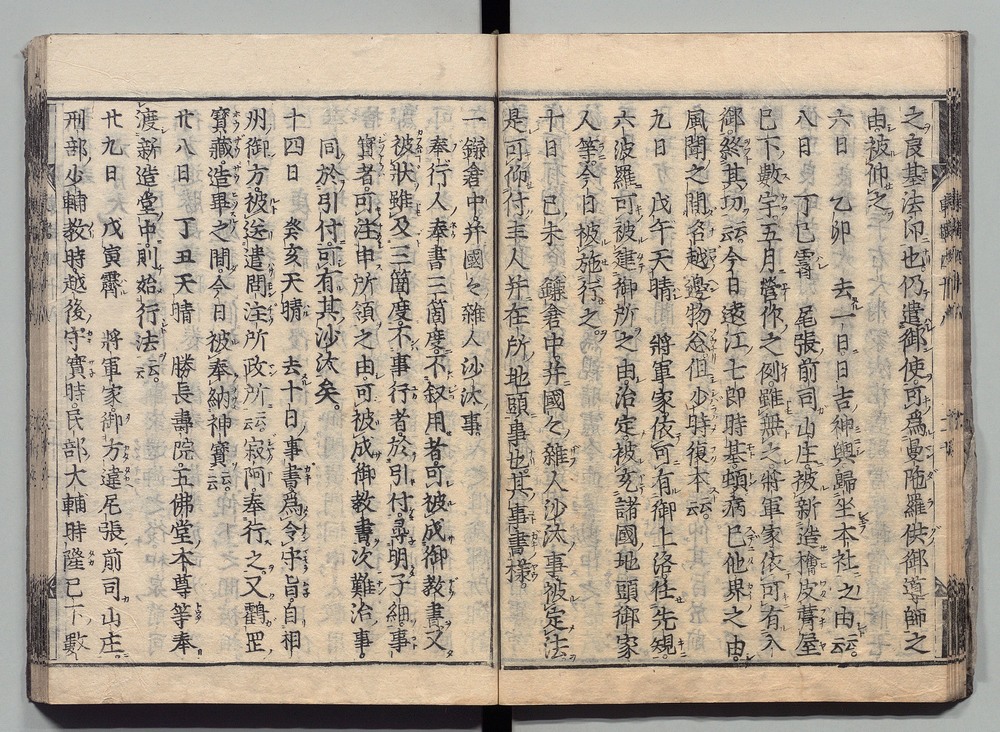 之良基法印也仍遣御使可為曼陀羅供御導師之
由被仰之
六日 乙卯 去一日日吉神輿歸坐本社之由云云
八日 丁巳霽 尾張前司山庄被新造檜皮葺屋
已下數宇五月營作之例雖無之將軍家依可有入
御終其功云云今日遠江七郎時基頓病已他界之由
風聞之間名越邊物忩但少時復本云云
九日 戊午天晴 將軍家依可有御上洛任先規
六波羅可被建御所之由治定被充諸國地頭御家
人等今日被施行之
十日 己未 鎌倉中并國々雜人沙汰事被定法
是可仰付主人并在所地頭事也其事書様
一鎌倉中并國々雜人沙汰事
奉行人奉書三箇度不叙用者可被成御教書又
被状雖及三箇度不事行者於引付尋明子細事
實者可注申所領之由可被成御教書次難治事
同於引付可有其沙汰矣
十四日 癸亥天晴 去十日事書為令守旨自相
州御方被送遣問注所政所云云寂阿奉行之又鶴罡
寳藏造畢之間今日被奉納神寳云云
廿八日 丁丑天晴 勝長壽院五佛堂本尊等奉
渡新造堂中則始行法云云
廿九日 戊寅霽 將軍家御方違尾張前司山庄
刑部少輔教時越後守實時民部大輔時隆已下數